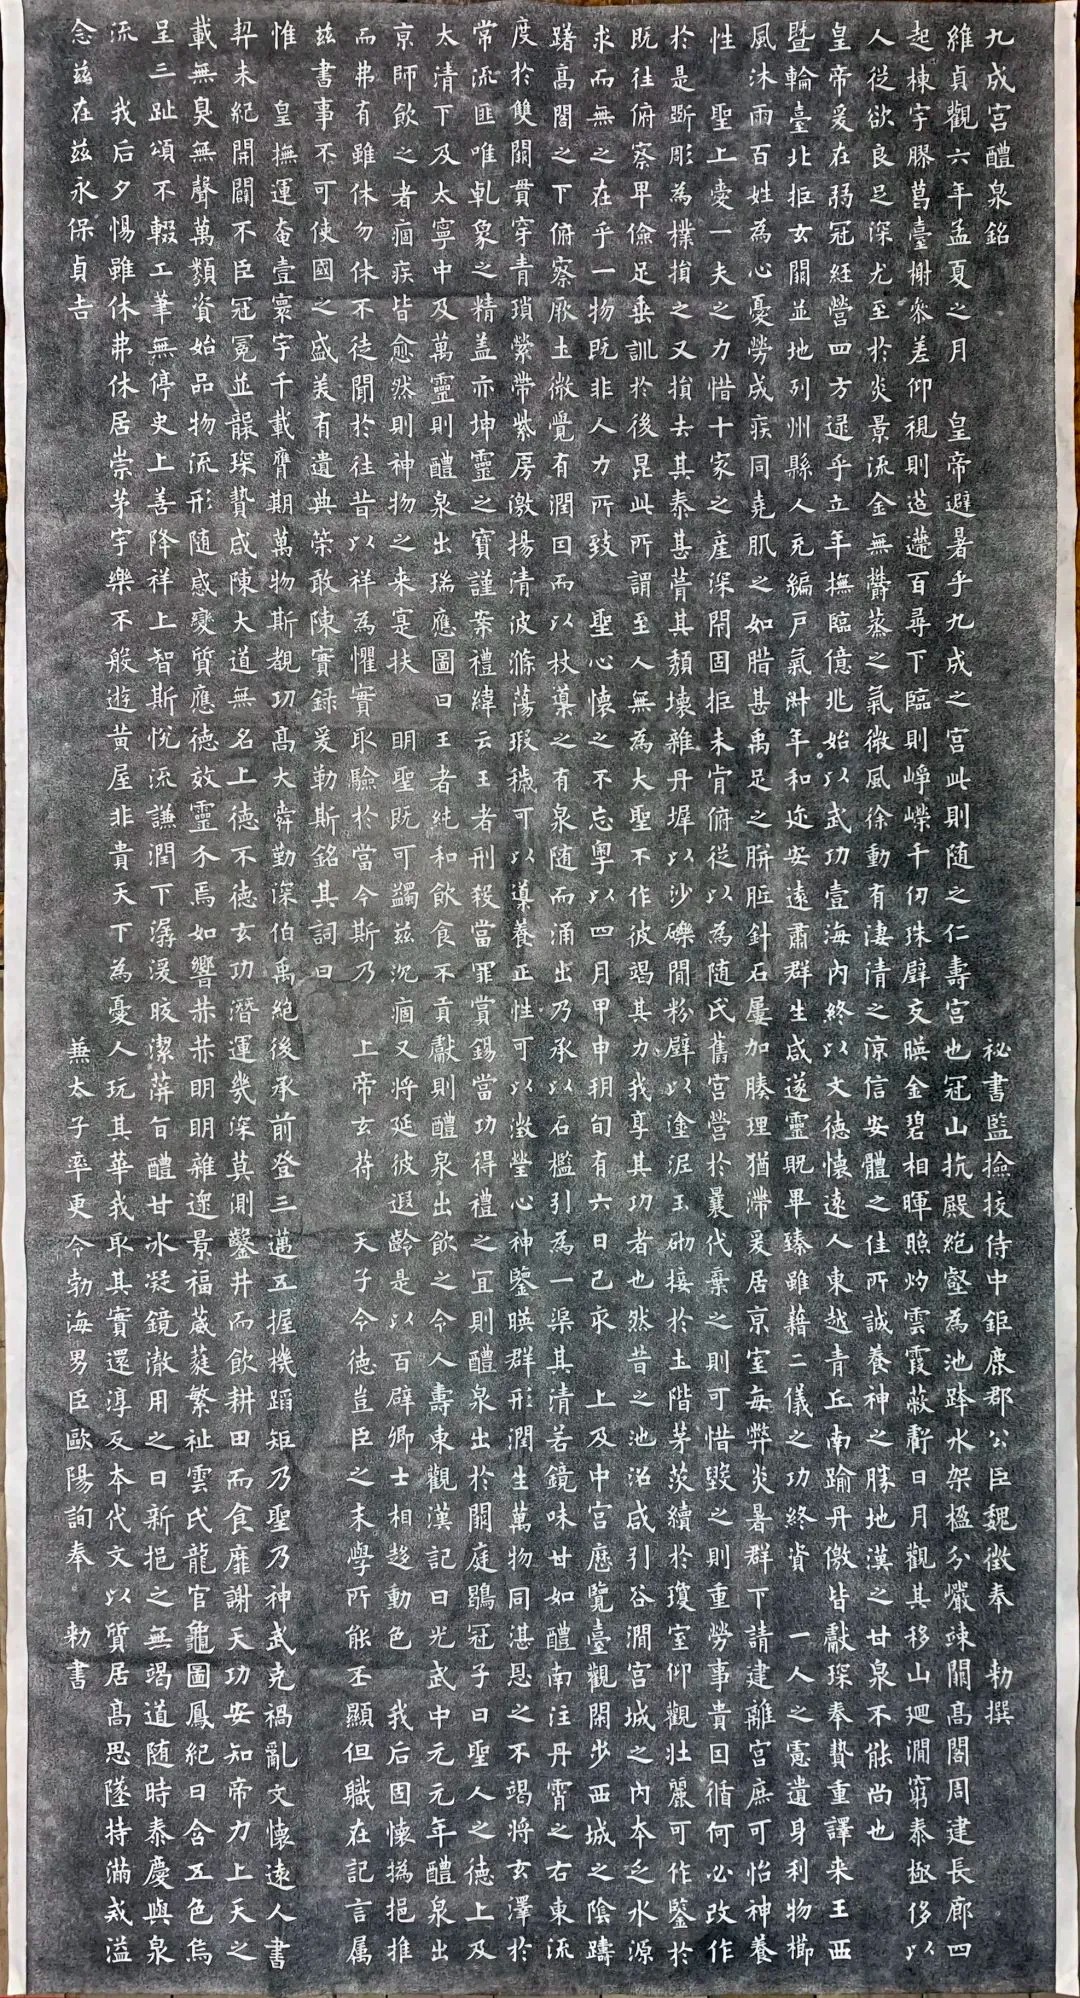 九成宮醴泉銘 祕書監撿挍侍中鉅鹿郡公臣魏徵奉 勅撰
維貞觀六年孟夏之月 皇帝避暑乎九成之宮此則随之仁壽宮也冠山抗殿絕壑為池跨水架楹分巖竦闕高閣周建長廊四
起棟宇膠葛臺榭參差仰視則迢遰百尋下臨則崢嶸千仞珠璧交暎金碧相暉照灼雲霞蔽虧日月觀其移山迴澗窮泰極侈以
人從欲良足深尤至於炎景流金無欝蒸之氣微風徐動有凄清之涼信安體之佳所誠養神之勝地漢之甘泉不能尚也
皇帝爰在弱冠經營四方逮乎立年撫臨億兆始以武功壹海內終以文德懷遠人東越青丘南踰丹儌皆獻琛奉贄重譯来王西
暨輪臺北拒玄闕並地列州縣人充編戶氣淑年和迩安遠肅群生咸遂靈貺畢臻雖藉二儀之功終資 一人之慮遺身利物櫛
風沐雨百姓為心憂勞成疾同堯肌之如腊甚禹足之胼胝針石屢加腠理猶滯爰居京室每弊炎暑群下請建離宮庶可怡神養
性 聖上愛一夫之力惜十家之產深閇固拒未肯俯從以為随氏舊宮營於曩代棄之則可惜毀之則重勞事貴因循何必改作
於是斲彫為樸損之又損去其泰甚葺其頹壞雜丹墀以沙礫間粉壁以塗泥玉砌接於土階茅茨續於瓊室仰觀壯麗可作鑒於
既往俯察卑儉足垂訓於後昆此所謂至人無為大聖不作彼竭其力我享其功者也然昔之池沼咸引谷澗宮城之內本乏水源
求而無之在乎一物既非人力所致 聖心懷之不忘粤以四月甲申朔旬有六日己亥 上及中宮歷覽臺觀閑步西城之陰躊
躇高閣之下俯察厥土微覺有潤因而以杖導之有泉随而涌出乃承以石檻引為一渠其清若鏡味甘如醴南注丹霄之右東流
度於雙闕貫穿青瑣縈帶紫房激揚清波滌蕩瑕穢可以導養正性可以澂瑩心神鑒暎群形潤生萬物同湛恩之不竭將玄澤於
常流匪唯乹象之精盖亦坤靈之寶謹案禮緯云王者刑殺當罪賞錫當功得禮之宜則醴泉出於闕庭鶡冠子曰聖人之德上及
太清下及太寧中及萬靈則醴泉出瑞應圖曰王者純和飲食不貢獻則醴泉出飲之令人壽東觀漢記曰光武中元元年醴泉出
京師飲之者痼疾皆愈然則神物之来寔扶 明聖既可蠲兹沉痼又將延彼遐齡是以百辟卿士相趍動色 我后固懷撝挹推
而弗有雖休勿休不徒聞於往昔以祥為懼實取驗於當今斯乃 上帝玄苻 天子令德豈臣之末學所能丕顯但職在記言属
兹書事不可使國之盛美有遺典策敢陳實録爰勒斯銘其詞曰
惟 皇撫運奄壹寰宇千載膺期萬物斯覩功高大舜勤深伯禹絕後承前登三邁五握機蹈矩乃聖乃神武克禍亂文懷遠人書
契未紀開闢不臣冠冕並襲琛贄咸陳大道無名上德不德玄功潛運幾深莫測鑿井而飲耕田而食靡謝天功安知帝力上天之
載無臭無聲萬類資始品物流形随感變質應德效靈介焉如響赫赫明明雜遝景福葳蕤繁祉雲氏龍官龜圖鳳紀日含五色烏
呈三趾頌不輟工筆無停史上善降祥上智斯悅流謙潤下潺湲皎潔蓱旨醴甘冰凝鏡澈用之日新挹之無竭道随時泰慶與泉
流 我后夕惕雖休弗休居崇茅宇樂不般遊黃屋非貴天下為憂人玩其華我取其實還淳反本代文以質居高思墜持滿戒溢
念兹在兹永保貞吉 兼太子率更令勃海男臣歐陽詢奉 勅書